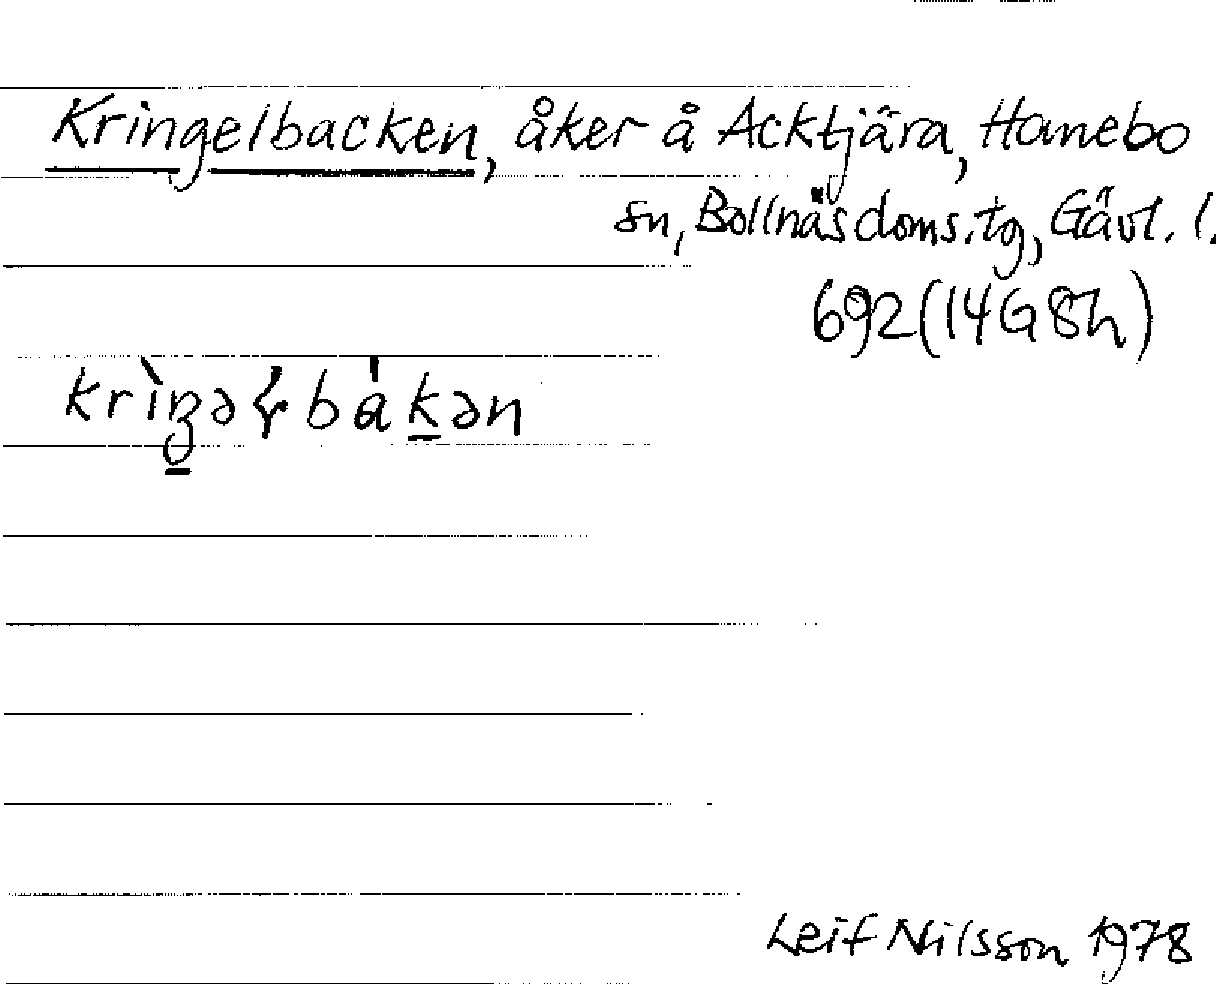 Kringelbacken, åker å Acktjära, Hanebo
sn, Bollnäs doms.tg, Gävl. l.
692 (14G 8h)
Leif Nilsson 1978